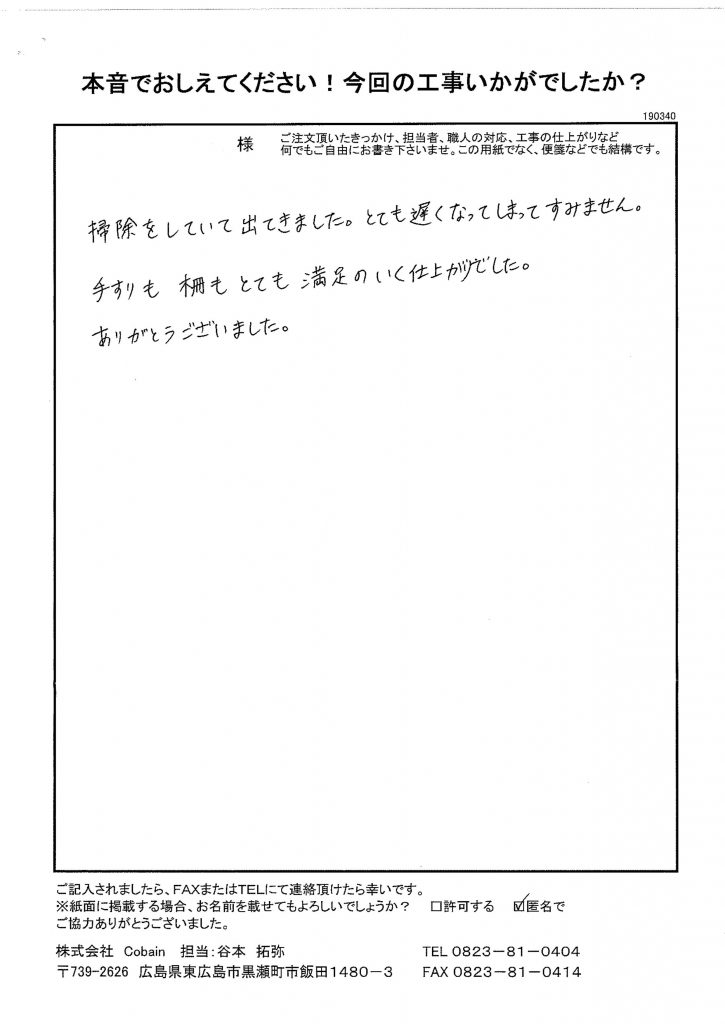 本音でおしえてください！今回の工事いかがでしたか？
190340
様
ご注文頂いたきっかけ、担当者、職人の対応、工事の仕上がりなど
何でもご自由にお書き下さいませ。この用紙でなく、便箋などでも結構です。
掃除をしていて出てきました。とても遅くなってしまってすみません。
手すりも 柵も とても 満足のいく仕上がりでした。
ありがとうございました。
ご記入されましたら、FAXまたはTELにて連絡頂けたら幸いです。
※紙面に掲載する場合、お名前を載せてもよろしいでしょうか？ □許可する ☑匿名で
ご協力ありがとうございました。
株式会社 Cobain 担当：谷本 拓弥 TEL 0823－81－0404
〒739-2626 広島県東広島市黒瀬町市飯田1480－3 FAX 0823－81－0414